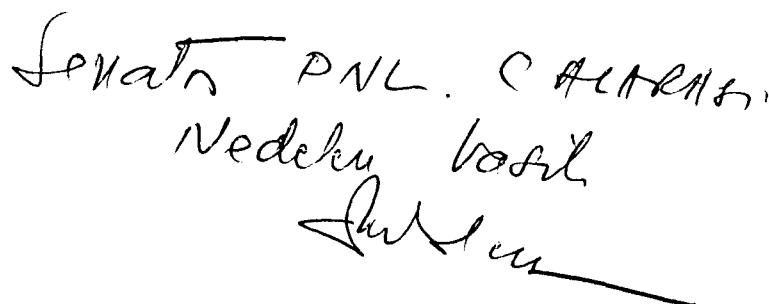 Senator PNL. CALARASI.
Nedelcu Vasile